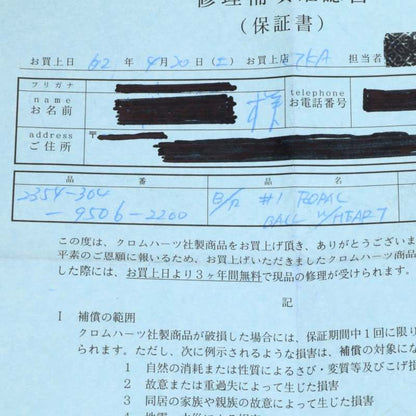 修理補償確認書
(保証書)
お買上日 62年 4月30日(土) お買上店 担当者
フリガナ
name お名前 様
telephone お電話番号
address ご住所 〒
品番 品名
2354-304
-9506-2200
B/P #1 ROPAL
BALL W/HEART
この度は、クロムハーツ社製商品をお買上げ頂き、ありがとうございま
平素のご恩顧に報いるため、お買上げいただきましたクロムハーツ商品
した際には、お買上日より3ヶ年間無料で現品の修理が受けられます。
記
I 補償の範囲
クロムハーツ社製商品が破損した場合には、保証期間中1回に限り
られます。ただし、次に例示されるような損害は、補償の対象にな
1 自然の消耗または性質によるさび・変質等及びこげ損
2 故意または重過失によって生じた損害
3 同居の家族や親族の故意によって生じた損害
4